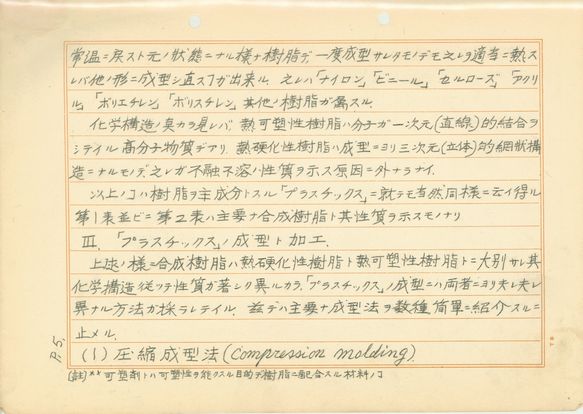 常温ニ戻スト元ノ状態ニナル様ナ樹脂デ一度成型サレタモノデモ之レヲ適当ニ熱ス
レバ他ノ形ニ成型シ直スヿガ出来ル. 之レハ「ナイロン」,「ビニール」,「セルローズ」,「アクリ
ル」,「ポリエチレン」,「ポリスチレン」其他ノ樹脂ガ属スル.
化学構造ノ臭カラ見レバ, 熱可塑性樹脂ハ分子ガ一次元(直線)的結合ヲ
シテイル高分子物質デアリ. 熱硬化性樹脂ハ成型ニヨリ三次元(立体)的網状構
造ニナルモノデ, 之レガ不融不溶ノ性質ヲ示ス原因ニ外ナラナイ.
以上ノヿハ樹脂ヲ主成分トスル「プラスチックス」ニ就テモ当然同様ニ云イ得ル
第1表並ビニ第2表ハ主要ナ合成樹脂ト其性質ヲ示スモノナリ
Ⅲ. 「プラスチックス」ノ成型ト加工.
上述ノ様ニ合成樹脂ハ熱硬化性樹脂ト熱可塑性樹脂トニ大別サレ其
化学構造従ツテ性質ガ著シク異ルカラ,「プラスチックス」ノ成型ニハ両者ニヨリ夫レ夫レ
異ナル方法ガ採ラレテイル. 茲デハ主要ナ成型法ヲ数種簡単ニ紹介スルニ
止メル.
(1) 圧縮成型法(Compression molding).
(註)** 可塑剤トハ可塑性ヲ能クスル目的デ樹脂ニ配合スル材料ノヿ
P.5.